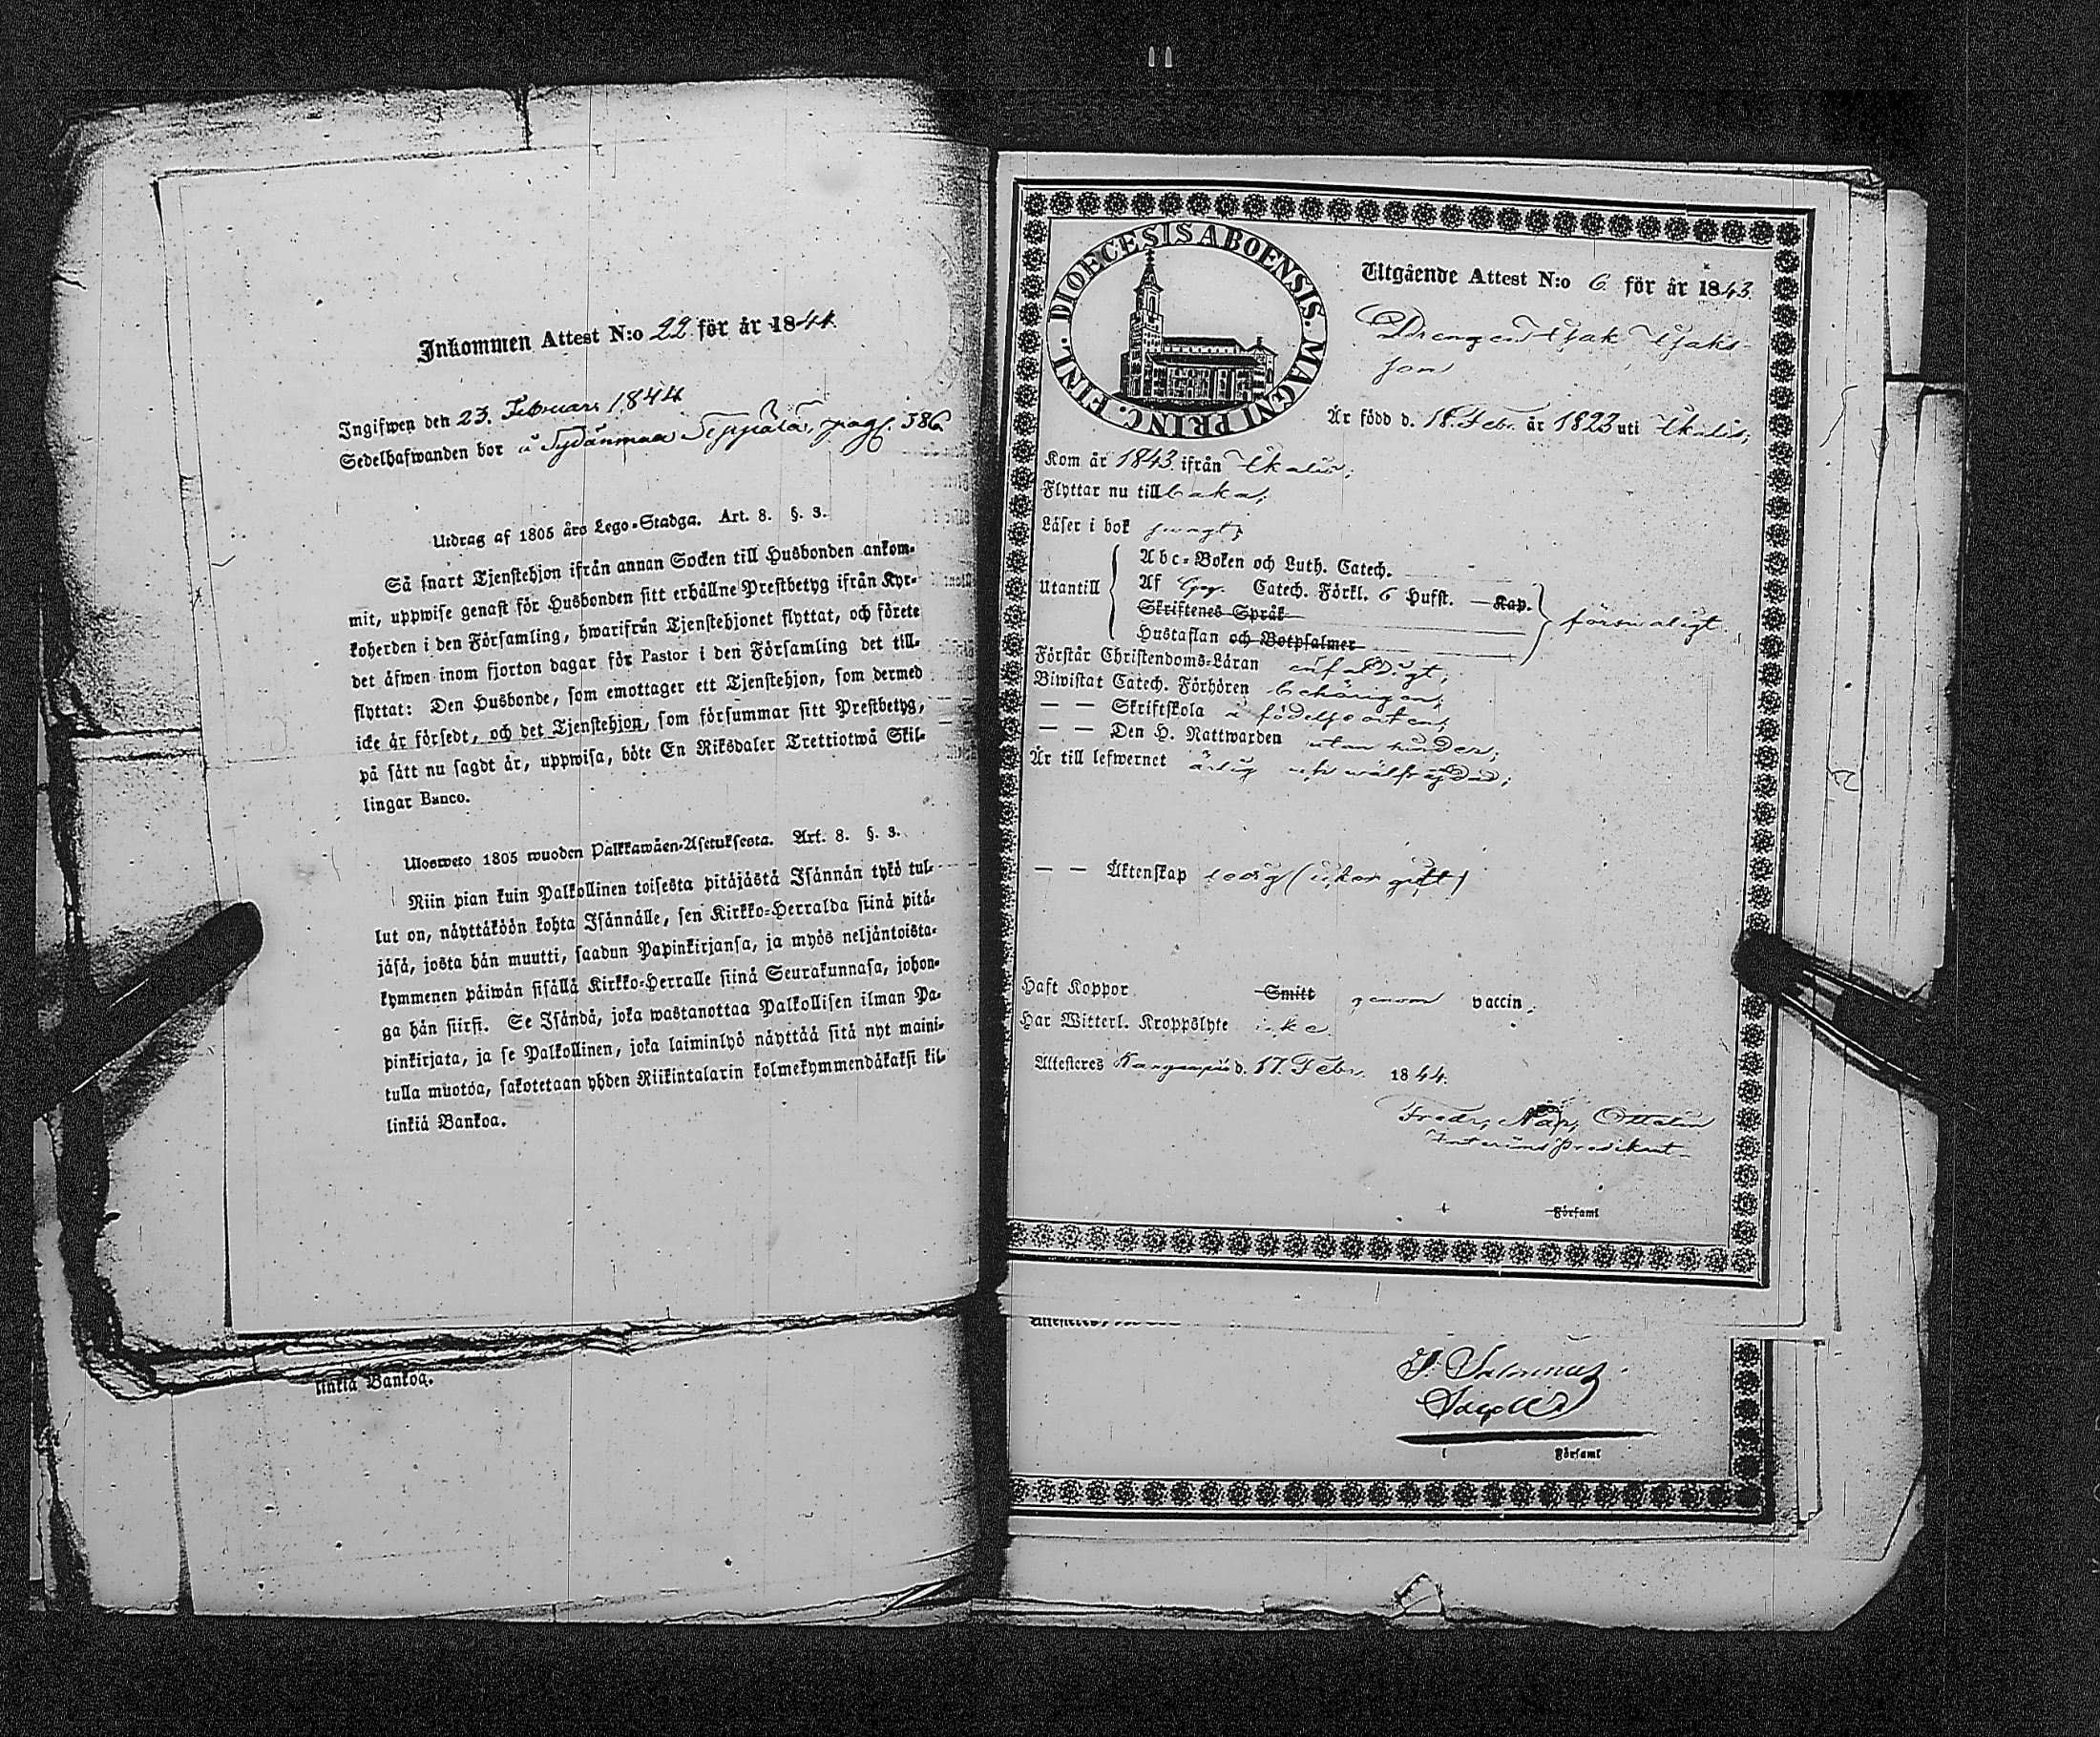 Inkommen Attest N:o 22 för år 1844.
Ingifwen den 23. Februari 1844
Sedelhafwanden bor i Sydänmaa Seppälä, pag. 386
Utdrag af 1805 års Lego-Stadga. Art. 8. §. 3.
Så snart Tjenstehjon ifrån annan Socken till Husbonden ankom-
mit, uppwise genast för Husbonden sitt erhållne Prestbetyg ifrån Kyr-
koherden i den Församling, hwarifrån Tjenstehjonet flyttat, och förete
det äfwen inom fjorton dagar för Pastor i den Församling det till-
flyttat: Den Husbonde, som emottager ett Tjenstehjon, som dermed
icke är försedt, och det Tjenstehjon, som försummar sitt Prestbetyg,
på sätt nu sagdt är, uppwisa, böte En Riksdaler Trettiotwå Skil-
lingar Banco.
Ulosweto 1805 wuoden Palkkawäen-Asetuksesta. Art. 8. §. 3.
Niin pian kuin Palkollinen toisesta pitäjästä Isännän tykö tul-
lut on, näyttäköön kohta Isännälle, sen Kirkko-Herralda siinä pitä-
jäsä, josta hän muutti, saadun Papinkirjansa, ja myös neljäntoista-
kymmenen päiwän sisällä Kirkko-Herralle siinä Seurakunnasa, johon-
ga hän siirsi. Se Isändä, joka wastanottaa Palkollisen ilman Pa-
pinkirjata, ja se Palkollinen, joka laiminlyö näyttää sitä nyt maini-
tulla muotoa, sakotetaan yhden Riikintalarin kolmekymmendäkaksi kil-
linkiä Bankoa.
linkiä Bankoa.
DIOECESIS ABOENSIS. MAGNI PRINC. FINL.
Utgående Attest N:o 6 för år 1843.
Drengen Isak Isaks-
son
Är född d. 18. Febr. år 1823 uti Ikalis;
Kom år 1843 ifrån Ikalis;
Flyttar nu tillbaka;
Läser i bok swagt;
Utantill
Abc-Boken och Luth. Catech.
Af Catech. Förkl. 6 Hufst. — Kap.
Skriftenes Språk
Hustaflan och Botpsalmer
förswarligt.
Förstår Christendoms-Läran enfaldigt;
Biwistat Catech. Förhören behörigen;
— — Skriftskola i födelseorten;
— — Den H. Nattwarden utan hinder;
Är till lefwernet ärlig och wälfräjdad;
— — Äktenskap ledig (icke gift)
Haft Koppor Smitt genom vaccin.
Har Witterl. Kroppslyte icke
Attesteres Kangasniemi d. 17. Febr. 1844.
Fredr. Nap. Ottelin
Interims Predikant
i Församl
Attesteres
i Församl